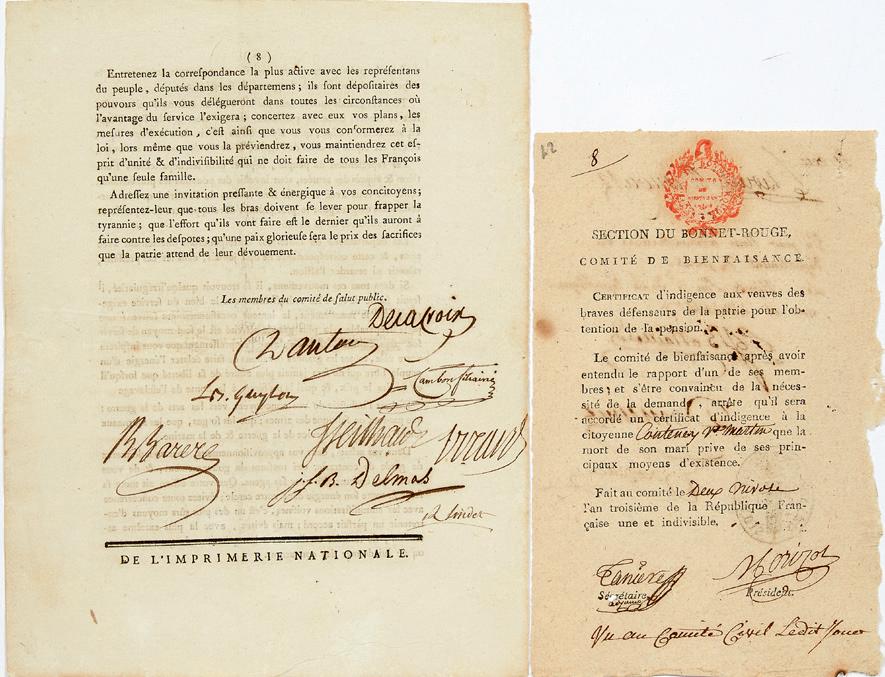 ( 8 )
Entretenez la correspondance la plus active avec les représentans
du peuple, députés dans les départemens ; ils sont dépositaires des
pouvoirs qu'ils vous délégueront dans toutes les circonstances où
l'avantage du service l'exigera ; concertez avec eux vos plans, les
mesures d'exécution, c'est ainsi que vous vous conformerez à la
loi, lors même que vous la préviendrez, vous maintiendrez cet es-
prit d'unité & d'indivisibilité qui ne doit faire de tous les François
qu'une seule famille.
Adressez une invitation pressante & énergique à vos concitoyens ;
représentez-leur que tous les bras doivent se lever pour frapper la
tyrannie ; que l'effort qu'ils vont faire est le dernier qu'ils auront à
faire contre les despotes ; qu'une paix glorieuse sera le prix des sacrifices
que la patrie attend de leur dévouement.
Les membres du comité de salut public.
Delacroix
Danton
Cambon fils aîné
L. B. Guyton
B Barere
Treilhard
j. f. B. Delmas
R Lindet
DE L'IMPRIMERIE NATIONALE.
42
8
SECTION DU BONNET-ROUGE,
COMITÉ DE BIENFAISANCE.
CERTIFICAT d'indigence aux veuves des
braves défenseurs de la patrie pour l'ob-
tention de la pension.
Le comité de bienfaisance après avoir
entendu le rapport d'un de ses mem-
bres ; et s'être convaincu de la néces-
sité de la demande, arrête qu'il sera
accordé un certificat d'indigence à la
citoyenne Contenez Ve Martin que la
mort de son mari prive de ses prin-
cipaux moyens d'existence.
Fait au comité le Deux nivose
l'an troisième de la République Fran-
çaise une et indivisible.
Tanière
Morizot
Secrétaire
Président.
Vu au Comité Civil Ledit Jour